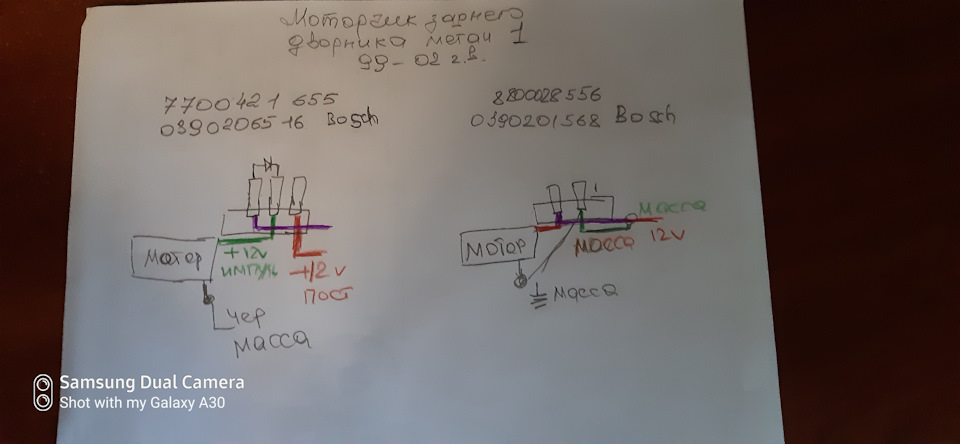 Моторчик заднего
дворника меган 1
99-02 г.в.
7700421 655
0390206516 Bosch
8200028556
0390201568 Bosch
+12v
импульс
Мотор
+12v
пост
чер
масса
масса
масса 12v
мотор
масса
Samsung Dual Camera
Shot with my Galaxy A30